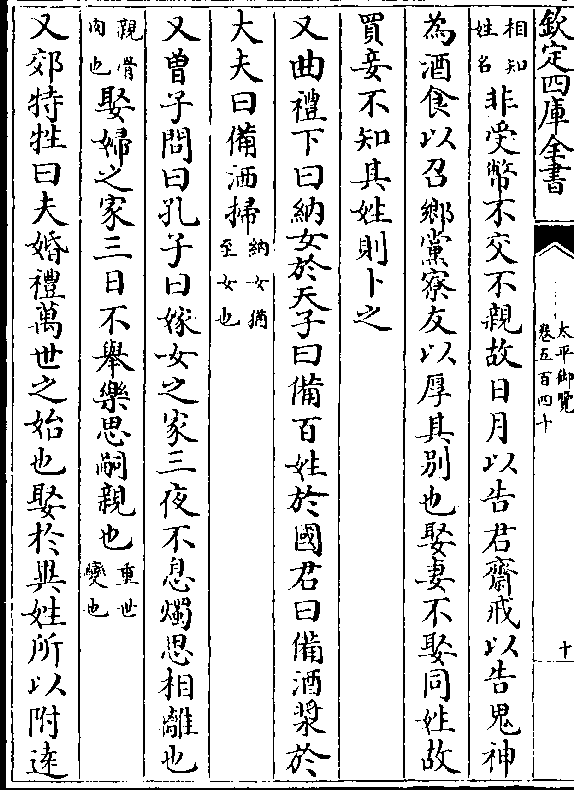 欽定四庫全書
太平御覽
卷五百四十
十
相知
姓名
非受幣不交不親故日月以告君齋戒以告鬼神
為酒食以召鄉黨寮友以厚其別也娶妻不娶同姓故
買妾不知其姓則卜之
又曲禮下曰納女於天子曰備百姓於國君曰備酒漿於
大夫曰備洒掃
納女猶
至女也
又曾子問曰孔子曰嫁女之家三夜不息燭思相離也
親骨
肉也
娶婦之家三日不舉樂思嗣親也
重世
變也
又郊特牲曰夫婚禮萬世之始也娶於異姓所以附逺